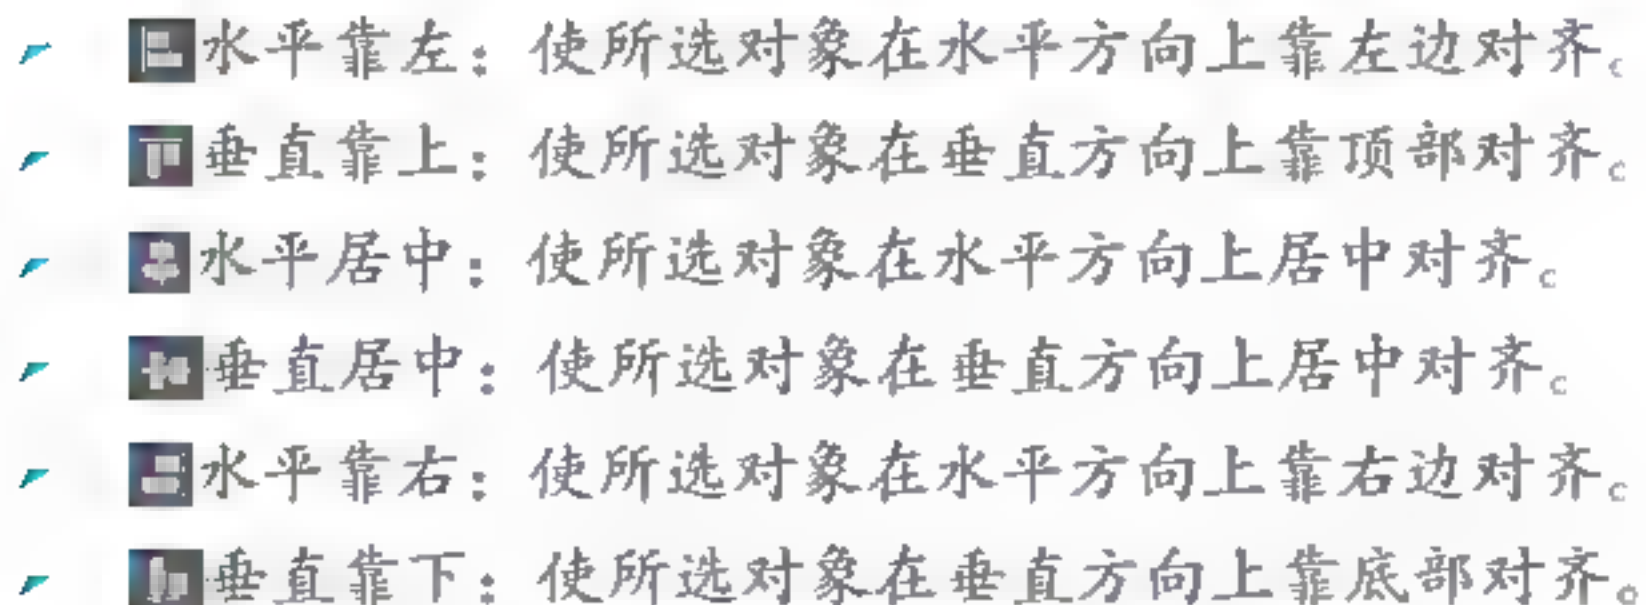 水平靠左：使所选对象在水平方向上靠左边对齐。
垂直靠上：使所选对象在垂直方向上靠顶部对齐。
水平居中：使所选对象在水平方向上居中对齐。
垂直居中：使所选对象在垂直方向上居中对齐。
水平靠右：使所选对象在水平方向上靠右边对齐。
垂直靠下：使所选对象在垂直方向上靠底部对齐。